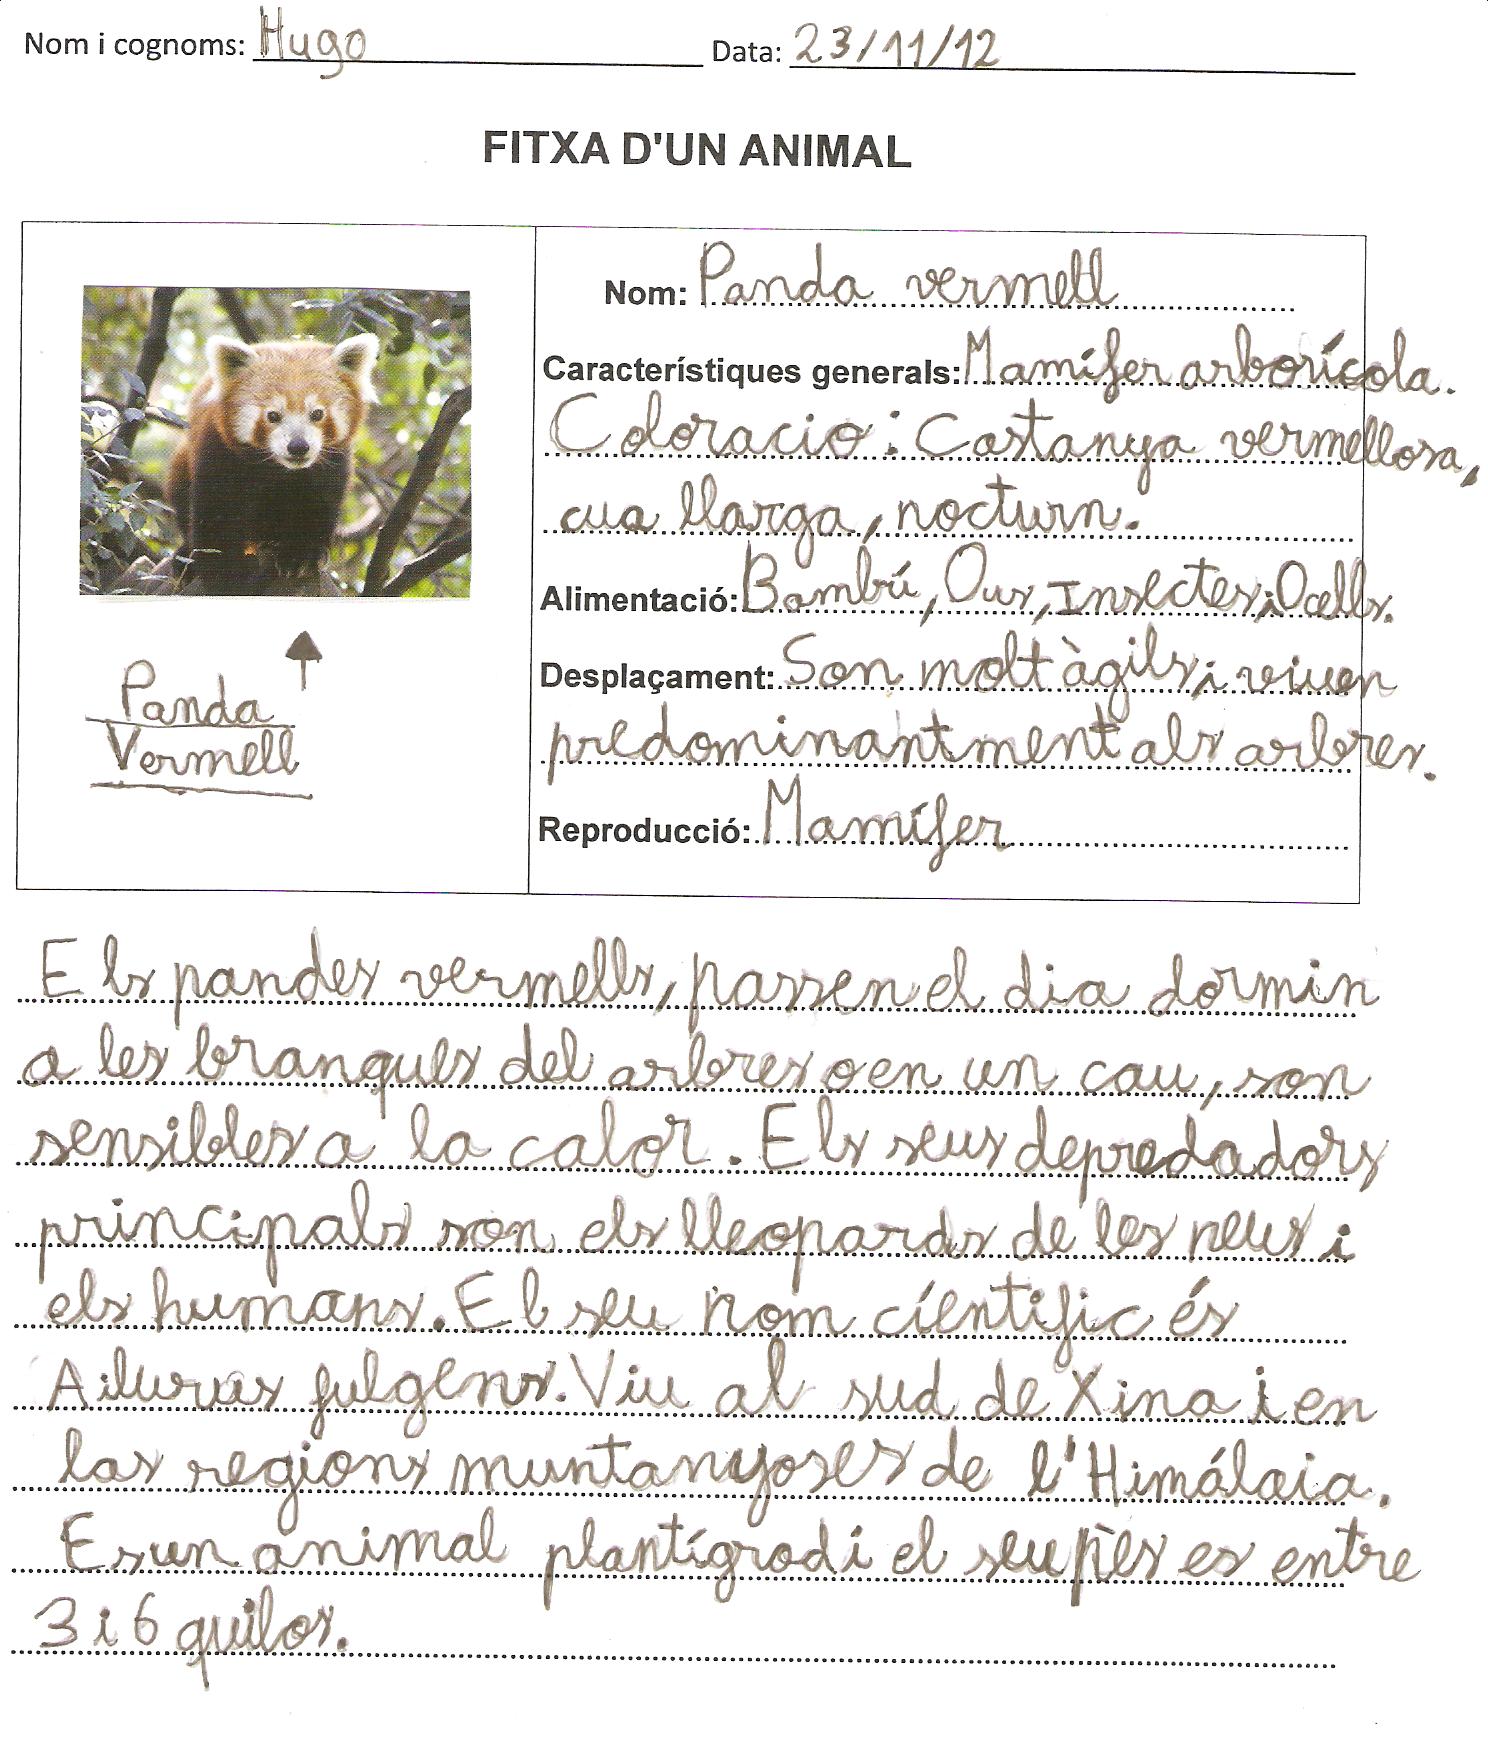 Nom i cognoms: Hugo Data: 23/11/12
FITXA D'UN ANIMAL
Panda
Vermell
Nom: Panda vermell
Característiques generals: Mamífer arborícola.
Coloracio: Castanya vermellosa,
cua llarga, nocturn.
Alimentació: Bambú, Ous, Insectes i Ocells.
Desplaçament: Son molt àgils i viuen
predominantment als arbres.
Reproducció: Mamífer
Els pandes vermells, passen el dia dormin
a les branques del arbres o en un cau, son
sensibles a la calor. Els seus depredadors
principals son els lleopards de les neus i
els humans. El seu nom cíentific és
Ailurus fulgens. Viu al sud de Xina i en
las regions muntanyoses de l'Himálaia.
Es un animal plantígrad i el seu pès es entre
3 i 6 quilos.